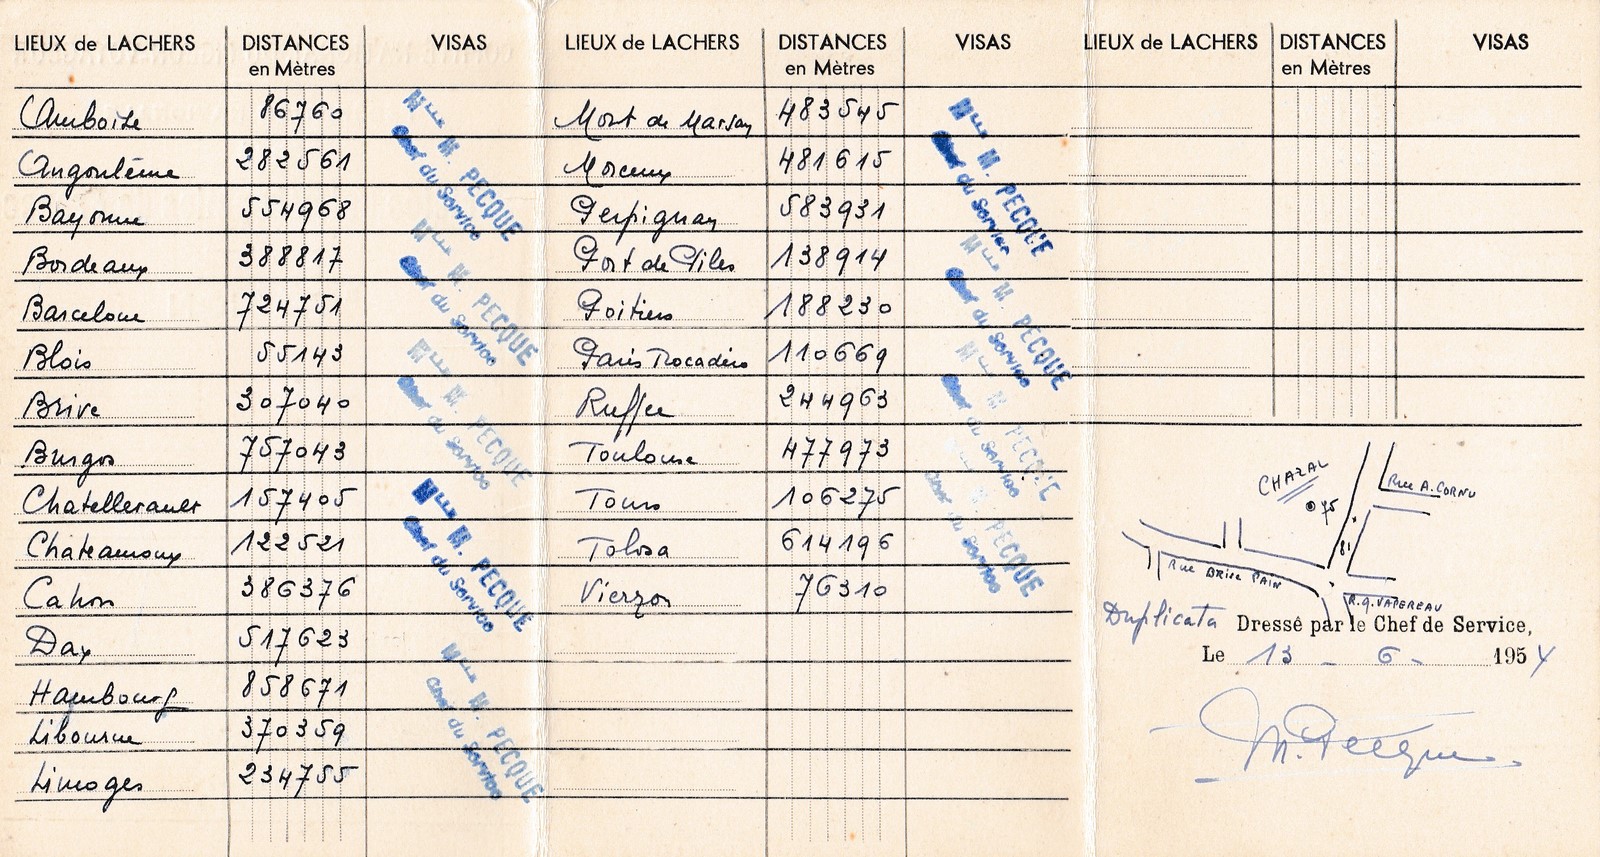 LIEUX de LACHERS DISTANCES en Mètres VISAS
Amboise 86760
Angoulême 282561
Bayonne 554968
Bordeaux 388817
Barcelone 724751
Blois 55143
Brive 307040
Burgos 757043
Chatellerault 157405
Chateauroux 122521
Cahors 386376
Dax 517623
Hambourg 858671
Libourne 370359
Limoges 234755
Mlle M. PECQUE
Chef du Service
Mlle M. PECQUE
Chef du Service
Mlle M. PECQUE
Chef du Service
Mlle M. PECQUE
Chef du Service
Mlle M. PECQUE
Chef du Service
LIEUX de LACHERS DISTANCES en Mètres VISAS
Mont de Marsan 483545
Morcenx 481615
Perpignan 583931
Port de Piles 138914
Poitiers 188230
Paris Trocadéro 110669
Ruffec 244963
Toulouse 477973
Tours 106275
Tolosa 614196
Vierzon 76310
Mlle M. PECQUE
Chef du Service
Mlle M. PECQUE
Chef du Service
Mlle M. PECQUE
Chef du Service
M. PECQUE
Chef du Service
LIEUX de LACHERS DISTANCES en Mètres VISAS
CHAZAL
75
Rue A. CORNU
81
Rue BRISE PAIN
R.G. VAPEREAU
Duplicata Dressé par le Chef de Service,
Le 13 - 6 - 1954
M. Pecque